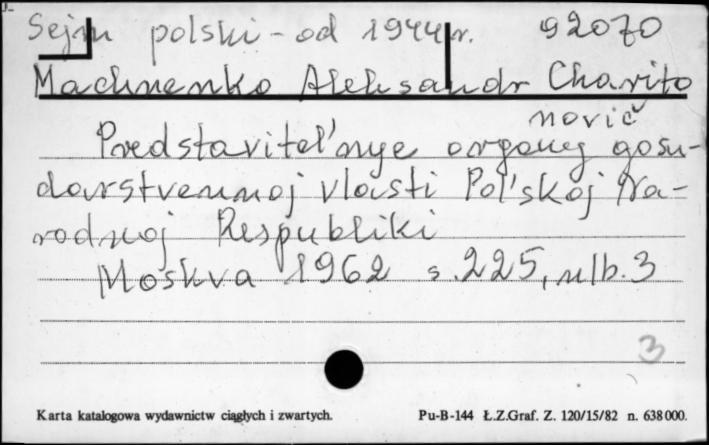 Sejm polski - od 1944 r. 92070
Machnenko Aleksandr Charito
novič
Predstavitel'nye organy gosu-
darstvennoj vlasti Pol'skoj Na-
rodnoj Respubliki
Moskva 1962 s. 225, nlb. 3
3
Karta katalogowa wydawnictw ciągłych i zwartych. Pu-B-144 Ł.Z.Graf. Z. 120/15/82 n. 638000.